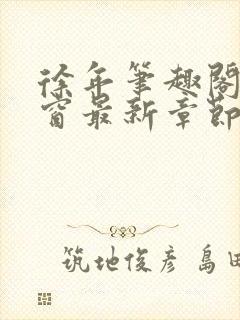 徐年笔趣阁
窗最新章節
筑地俊彦 島田